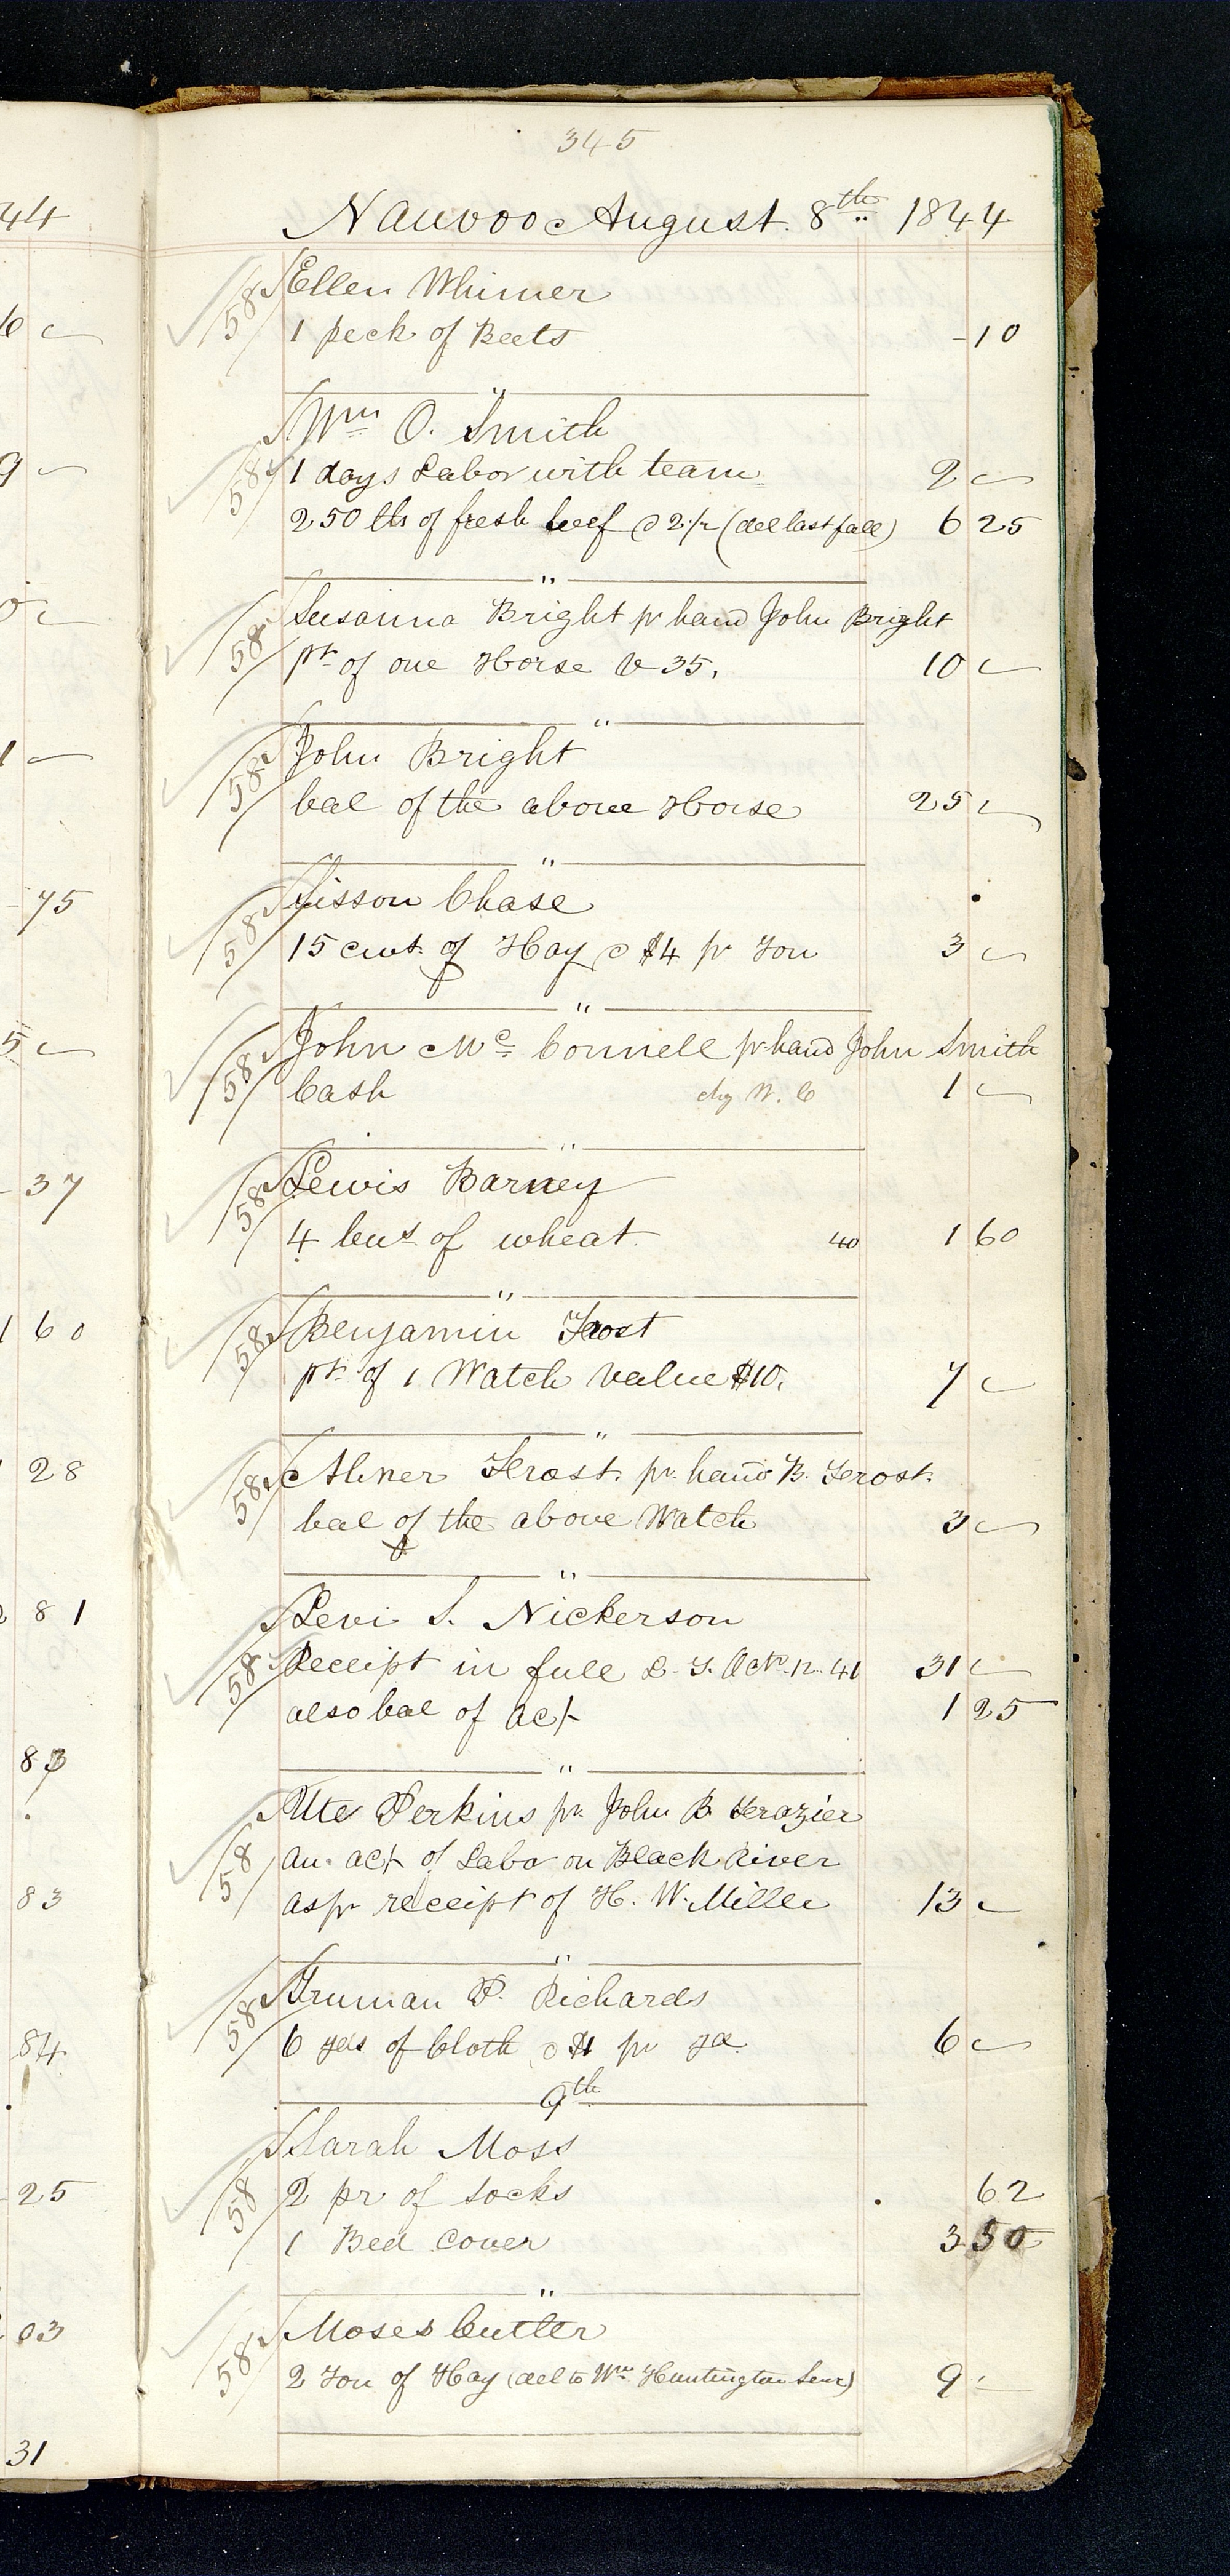 345
Nauvoo August. 8th 1844
Ellen Whimer
58
1 peck of Beets -10
"
Wm O. Smith
58
1 days Labor with team 2 —
250 lbs of fresh beef @ 2 1/2 (del last fall) 6 25
"
Susanna Bright pr hand John Bright
58
pt of one Horse V 35. 10 —
"
John Bright
58
bal of the above Horse 25 —
"
Sisson Chase
58
15 cwt of Hay @ $4 pr Ton 3 —
"
John Mc Connell pr hand John Smith
58
Cash chg W. C 1 —
"
Lewis Barney
58
4 bus of wheat 40 1 60
"
Benjamin Frost
58
pt of 1 Watch value $10. 7 —
"
Abner Frost. pr. hand B. Frost.
58
bal of the above Watch 3 —
"
Levi S. Nickerson
58
Receipt in full Oct. 12. 41 31 —
also bal of act 1 25
"
Ute Perkins pr. John B. Frazier
58
an act of Labor on Black River
as pr receipt of H. W. Miller 13 —
"
Truman P. Richards
58
6 yds of Cloth @ $1 pr yd 6 —
9th
Sarah Moss
58
2 pr of socks 62
1 Bed Cover 3 50
"
Moses Cutler
58
2 Ton of Hay (del to Wm Huntington Senr) 9 —
44
6 —
9 —
1 —
75
5 —
37
1 60
28
81
83
83
84
25
03
31